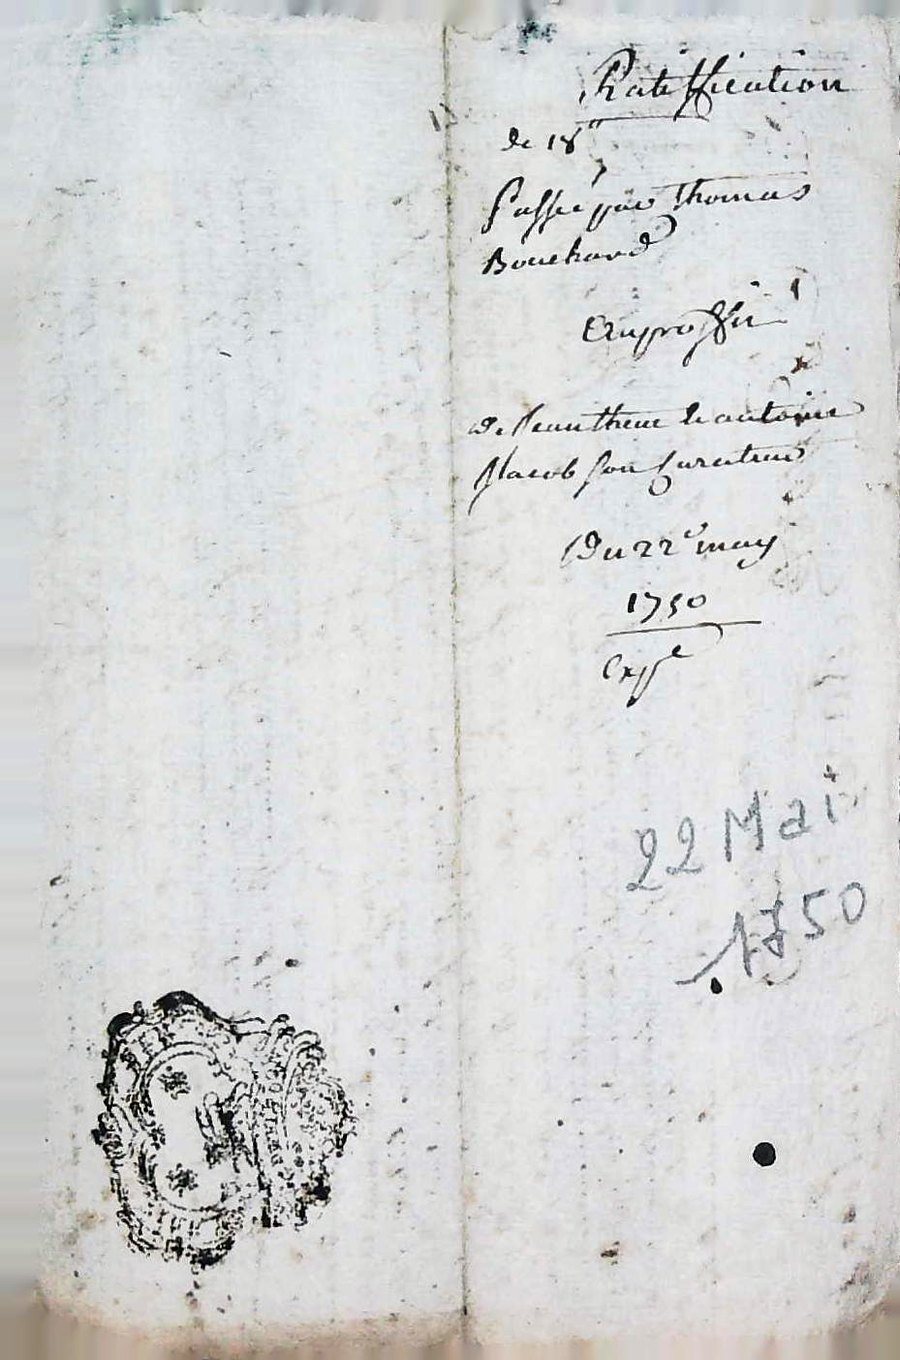 Ratiffication
de 18ᵗᵗ
Passée par Thomas
Bouchard
Au proffit
de Jean
Jacob son Curateur
Du 22ᵉ may
1750
Expᵉ
22 Mai
1750